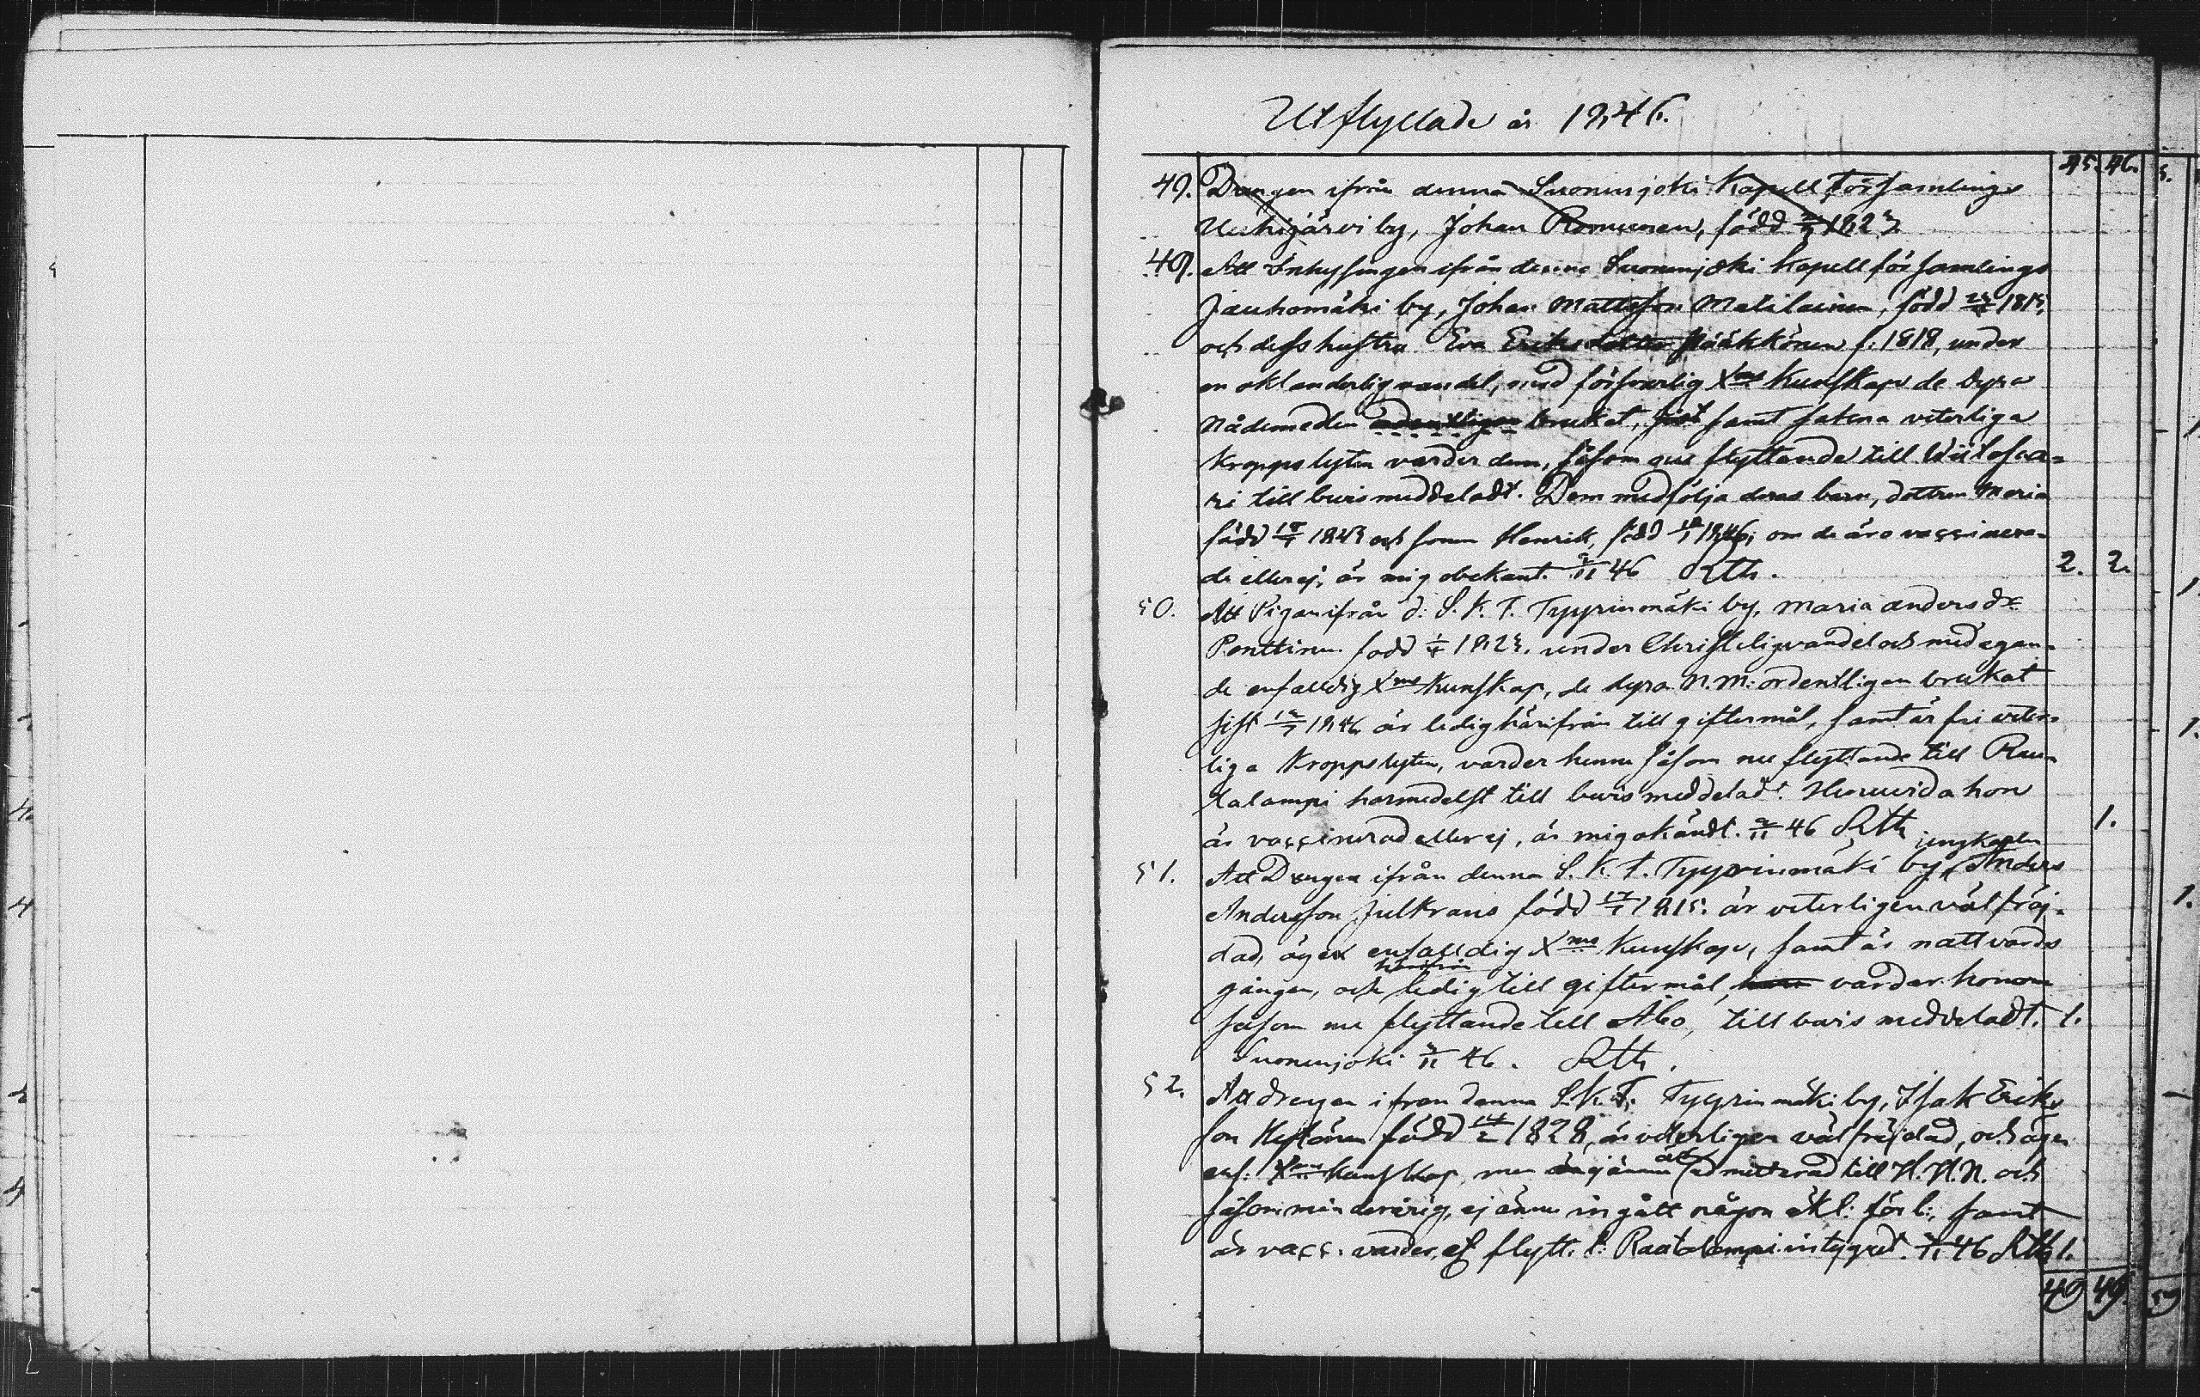 Utflyttade år 1846.
45. 46.
49. Drengen ifrån denna Suonenjoki Kapell Församlings
by, Johan Romunen, född 182
49. Att Inhysingen ifrån denna Suonenjoki Kapellförsamlings
Jauhomäki by, Johan Mattsson Matilainen, född 1815,
och dess hustru Eva Ericsdotter Pääkkönen f. 1818, under
en oklanderlig vandel, med försvarlig Xms Kunskap de dyra
Nådemedlen ordentligen brukat, samt sakna veterliga
Kroppslyten varder dem, såsom nu flyttande till
till bevis meddeladt. Dem medfölja deras barn, dottren Maria
född 1843 och sonen Henrik, född 1846; om de äro vaccinera-
de eller ej, är mig obekant. 46 Rth. 2. 2.
50. Att Pigan ifrån d: S. K. F. Tyyrinmäki by, Maria Andersdr
Penttinen född 1823. under Christelig vandel och med egan-
de enfalldig Xms Kunskap, de dyra N.M: ordentligen brukat
sist 1846 är ledig härifrån till giftermål, samt är fri veter-
liga Kroppslyten, varder henne såsom nu flyttande till Rau-
talampi härmedelst till bevis meddeladt. Huruvida hon
är vaccinerad eller ej, är mig okändt. 46 Rth 1.
51. Att Drengen ifrån denna S. K. F. Tyyrinmäki by, ungkarlen Anders
Andersson Julkrans född 1815. är veterligen välfräj-
dad, äger enfalldig Xms Kunskap, samt är nattvards
gången, och härifrån ledig till giftermål, varder honom
såsom nu flyttande till Åbo, till bevis meddeladt. 1.
Suonenjoki 46. Rth.
52. Att drengen ifrån denna S.K.F. Tyyrinmäki by, Isak Eriks
son född 1828, är veterligen välfräjdad, och äger
enf: Xms Kunskap, men admitterad till H. H. N. och
såsom minderårig, ej ännu ingått någon äkt: förb:, samt
är vacc: varder, flytt. t: Rautalampi intygadt. 46 Rth 1.
49 49.